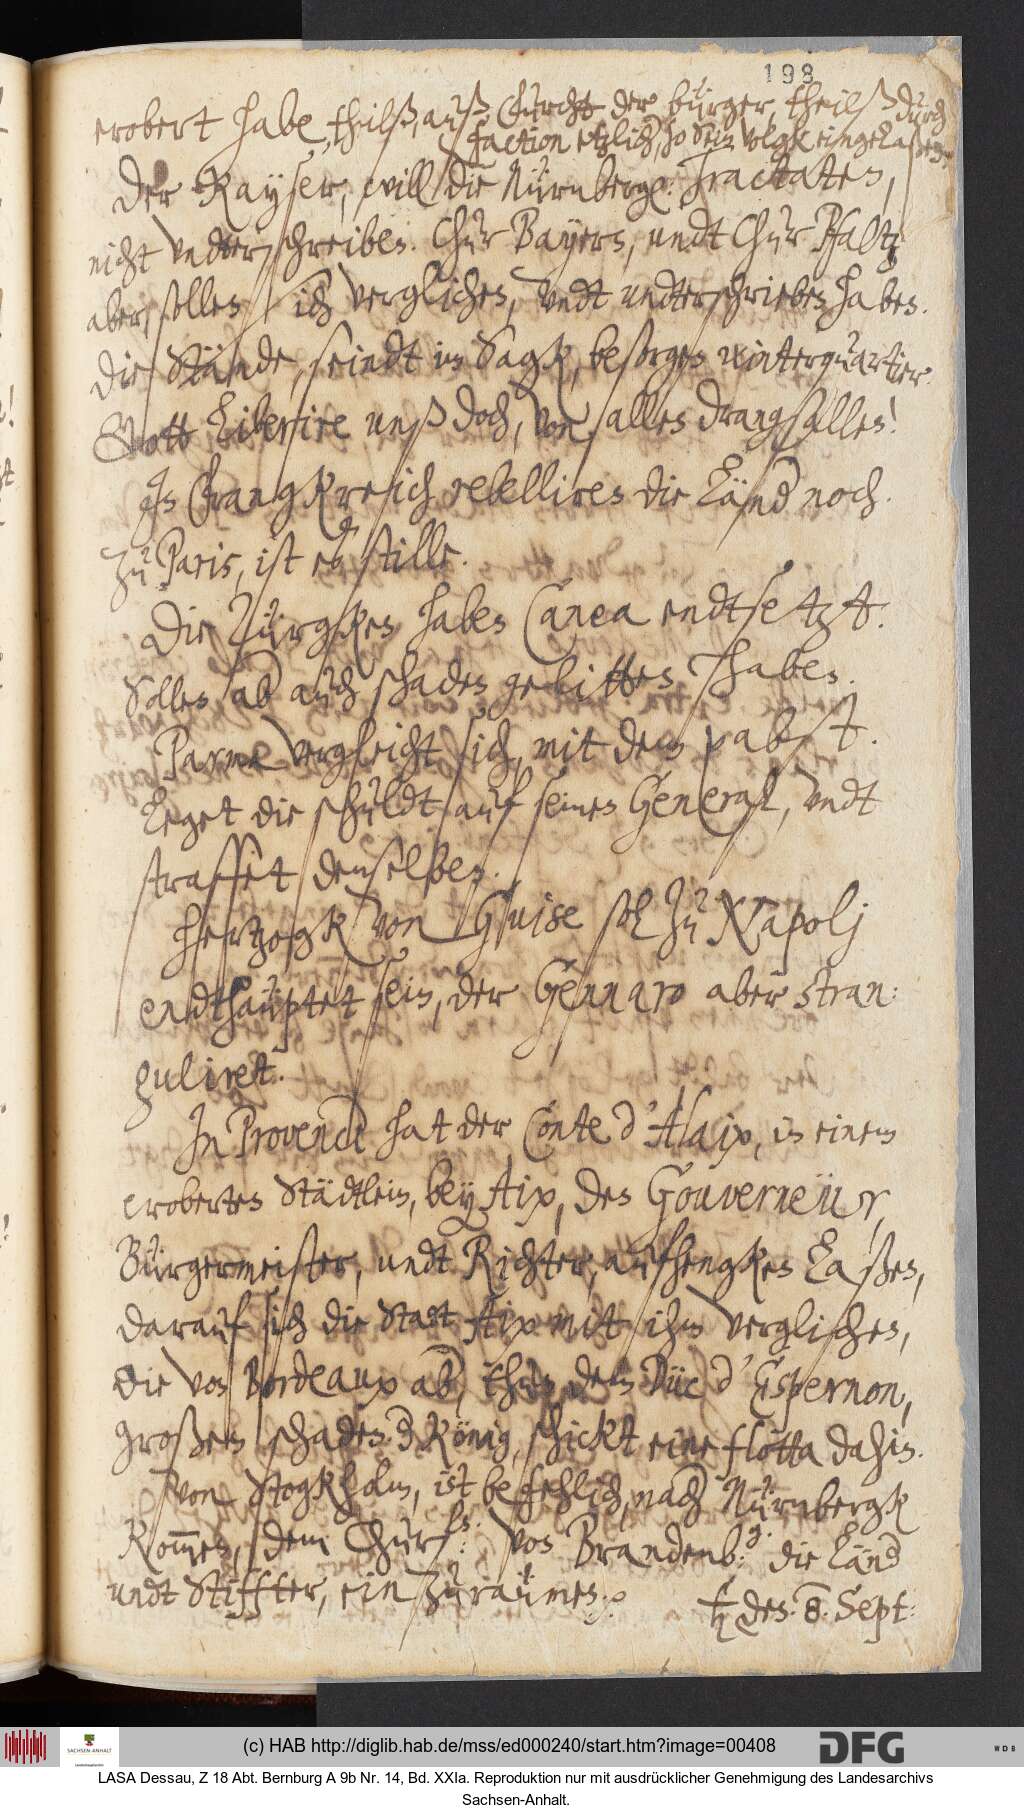 198
erobert habe, theilß auß furcht der bürger, theilß durch
faction etzlich, so sein volgk eingelaßen.
Der Kayser, will die Nürnberg: Tractaten,
nicht vndterschreiben. Chur Bayern, undt Chur Pfaltz
aber, sollen sich verglichen, vndt undterschrieben haben.
Die Stände, seindt im Sagk, besorgen winterquartier.
Gott liberire unß doch, von allen drangsallen!
In Frangkreich rebelliren die Länd noch.
Zu Paris, ist es stille.
Die Türgken haben Canea endtsetzt.
Sollen ab auch schaden gelitten haben.
Parma vergleicht sich, mit dem pabst.
Leget die schuldt auf seinen General, vndt
straffet denselben.
Hertzogk von Guise sol zu Napolj
endthauptet sein, der Gennaro aber stran:
guliret.
In Provence hat der Conte d'Alaix, in einem
eroberten Städtlein, bey Aix, den Gouverneur,
Bürgermeister, undt Richter, aufhengken laßen,
darauf sich die Stadt Aix mit ihm verglichen,
die von Bordeaux ab, thun dem Duc d'Espernon,
großen schaden. d König, schickt eine flotta dahin.
Von Stogkholm, ist befehlich, nach Nürnbergk
kommen, dem Churfs: von Brandenb:g: die Länd
undt Stiffter, ein zuraümen.
♄ den: 8. Sept:
(c) HAB http://diglib.hab.de/mss/ed000240/start.htm?image=00408
SACHSEN-ANHALT
DFG
WDB
LASA Dessau, Z 18 Abt. Bernburg A 9b Nr. 14, Bd. XXIa. Reproduktion nur mit ausdrücklicher Genehmigung des Landesarchivs
Sachsen-Anhalt.